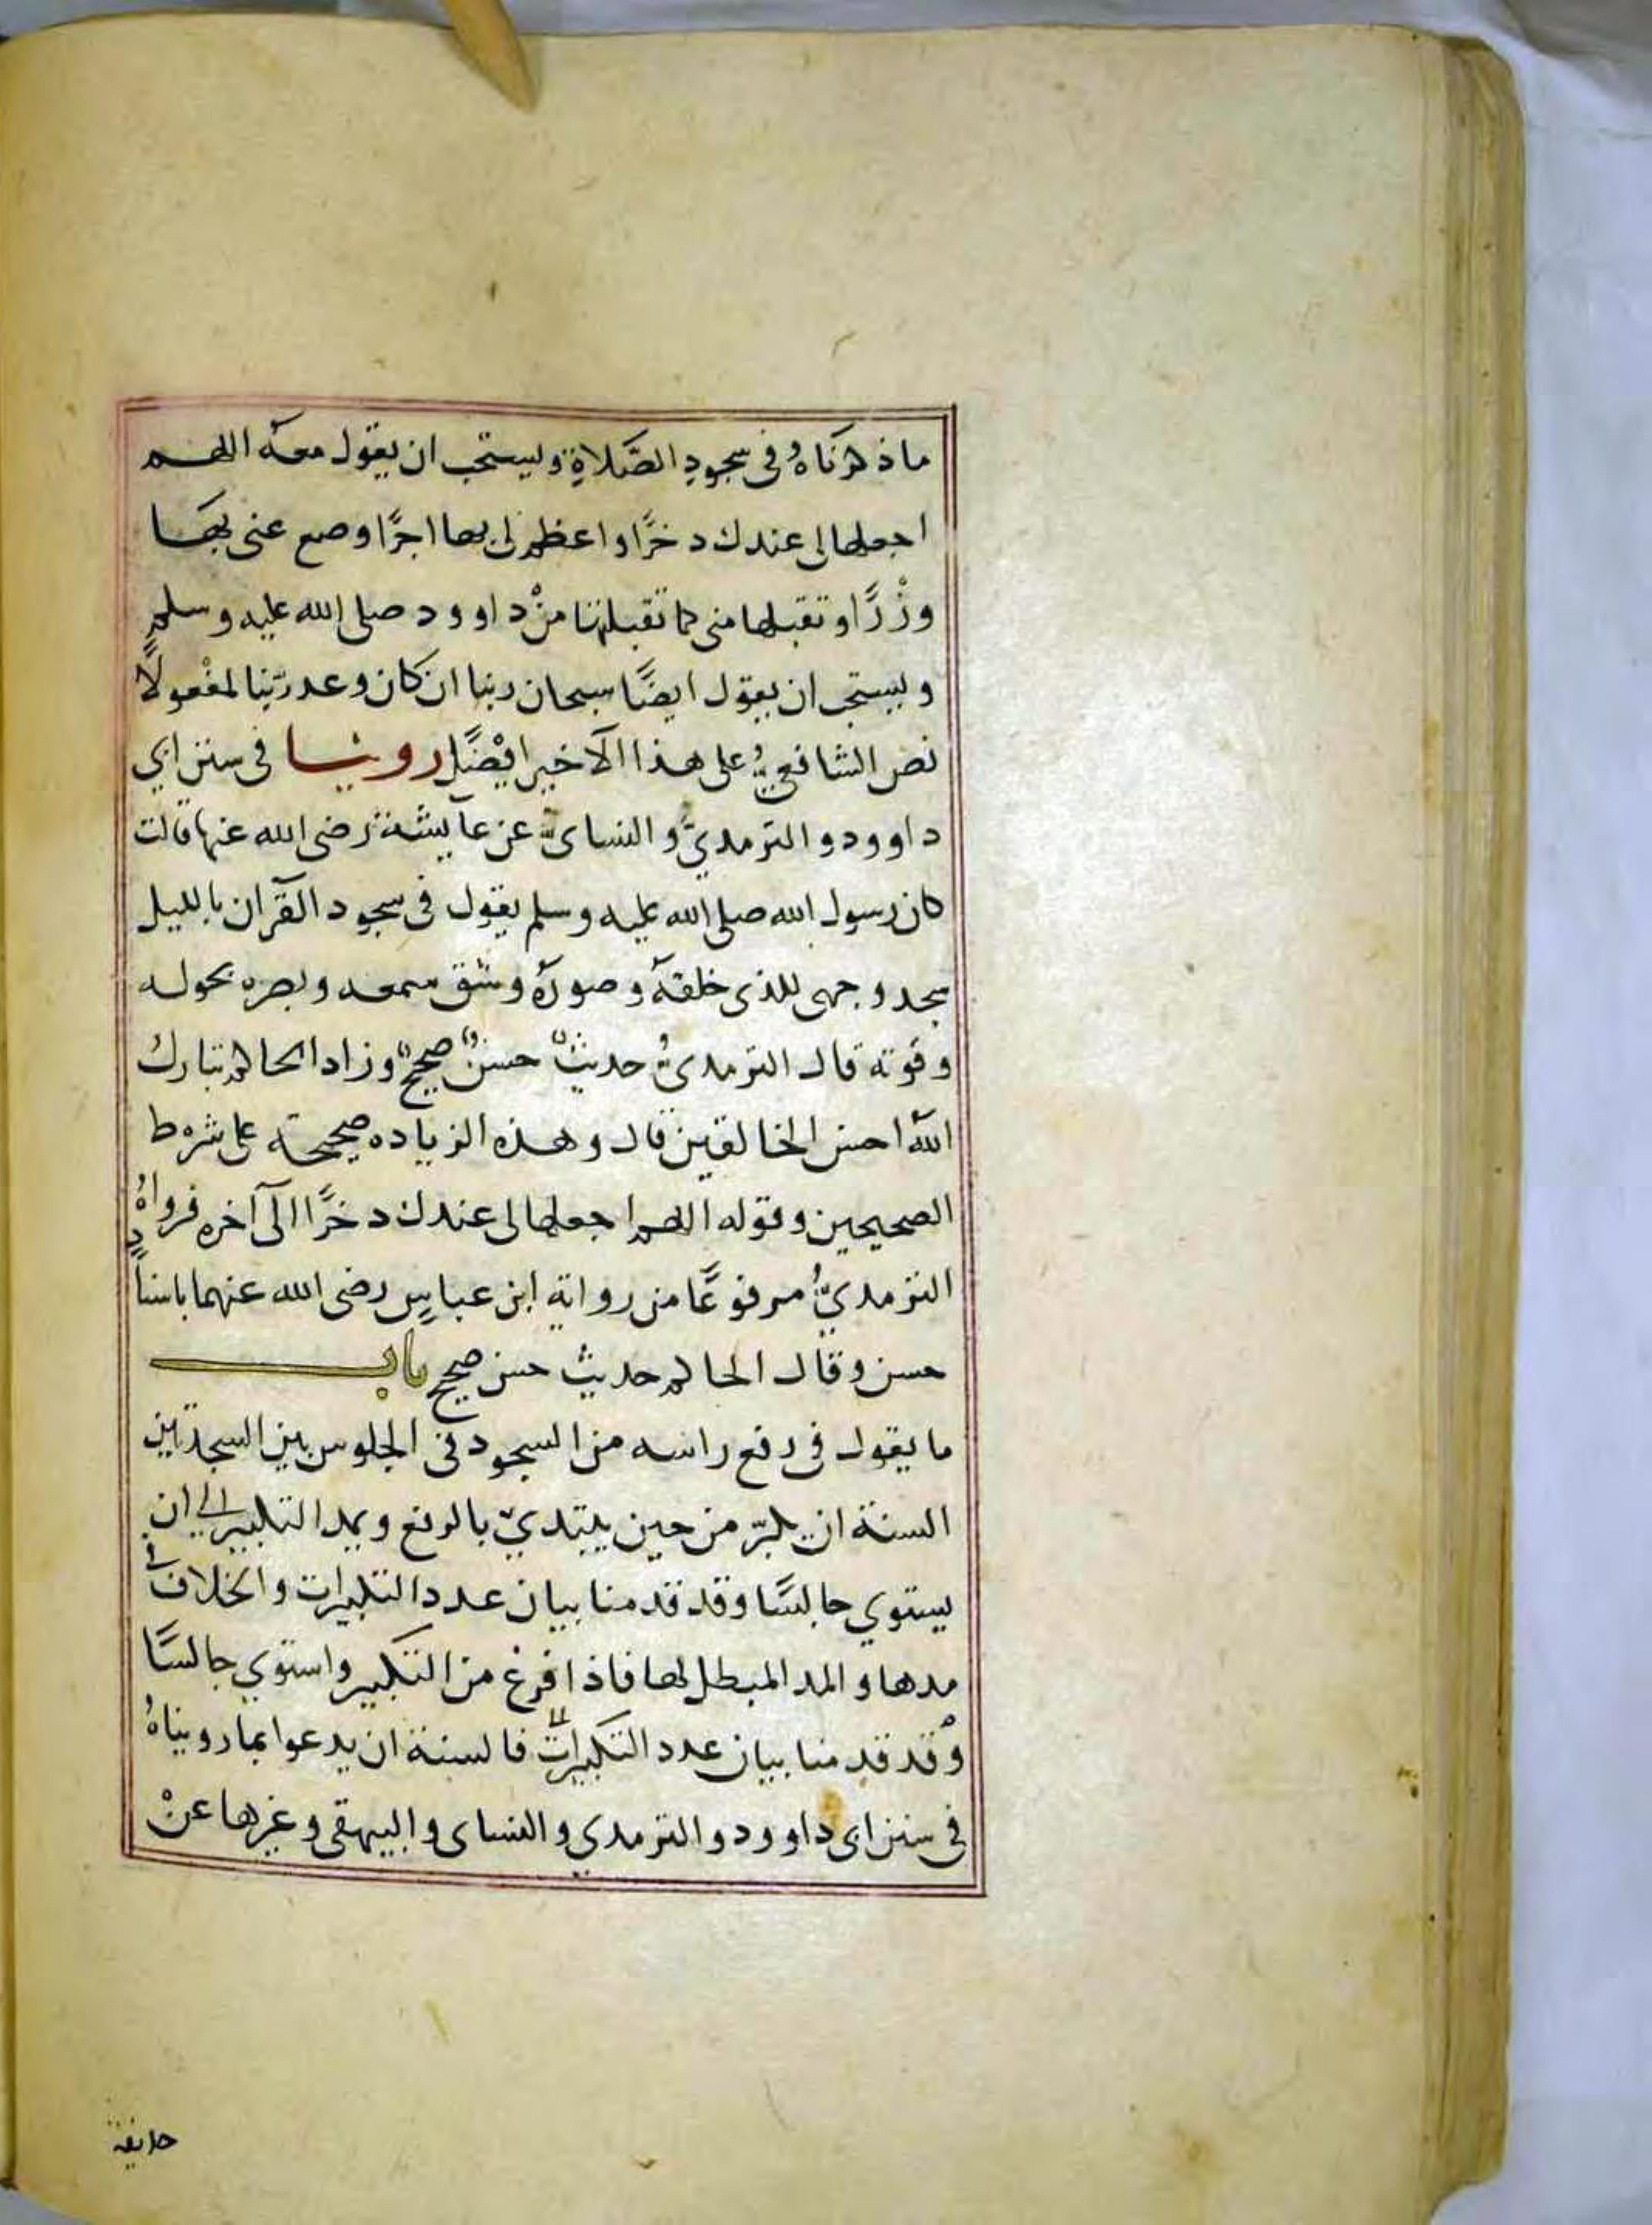 ما ذكرناهُ في سجودِ الصَّلاةِ ويستحب ان يقول معه اللهم
اجعلها لى عندك دخرًا واعظم لى بها اجرًا وضع عنى بها
وزْرًا وتقبلها منى كما تقبلتها منْ داوود صلى الله عليه وسلم
ويستحب ان يقول ايضًا سبحان ربنا ان كان وعد ربّنا لمفْعولًا
نص الشافعيُّ على هذا الاخير ايْضًا روينا في سنن ابي
داوود والترمديّ والنساىّ عن عآيشة رضى الله عنها قالت
كان رسول الله صلى الله عليه وسلم يقول فى سجود القرآن بالليل
سجد وجهى للذى خلقه وصوره وشق سمعه وبصره بحوله
وقوته قال الترمدىُّ حديثٌ حسنٌ صحيحٌ وزاد الحاكم تبارك
اللهُ احسن الخالقين قال وهذه الزياده صحيحة على شرط
الصحيحين وقوله اللهم اجعلها لى عندك دخرًا الى آخره فرواهُ
الترمديُّ مرفوعًا من رواية ابن عباسٍ رضى الله عنهما باسنادٍ
حسن وقال الحاكم حديث حسن صحيح باب
ما يقول في رفع راسه من السجود فى الجلوس بين السجدتين
السنة ان يكبّر من حين يبتديّ بالرفع ويمد التكبير الي ان
يستوي جالسًا وقد قدمنا بيان عدد التكبيرات والخلاف في
مدها والمد المبطل لها فاذا فرغ من التكبير واستوي جالسًا
وقد قدمنا بيان عدد التكبيرات فالسنة ان يدعوا بما رويناهُ
في سنن ابى داوود والترمدي والنساى والبيهقى وغيرها عنْ
حديفة